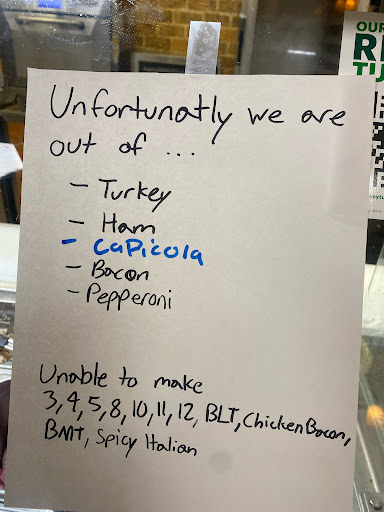 Unfortunatly we are
out of ...
- Turkey
- Ham
- CaPicola
- Bacon
- Pepperoni
Unable to make
3,4,5,8,10,11,12, BLT, Chicken Bacon,
BMT, Spicy Italian
OUR